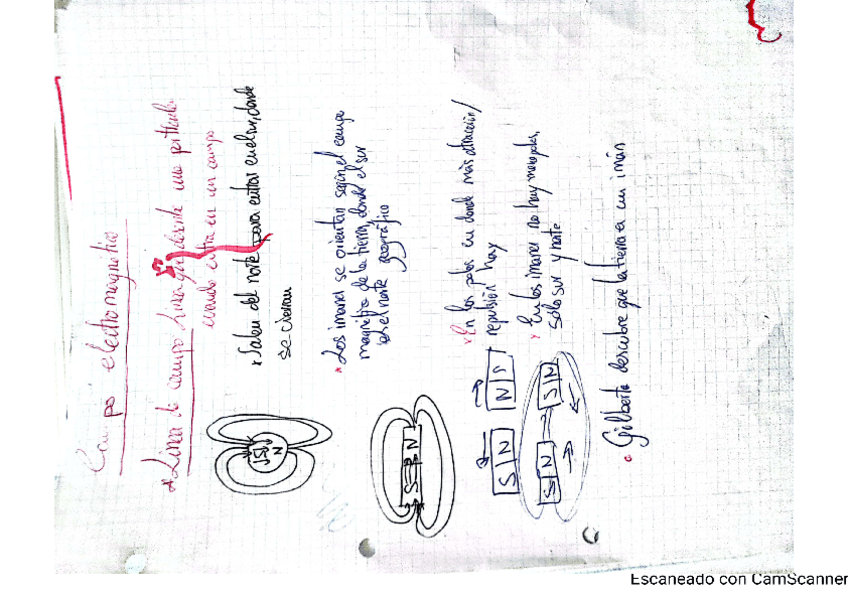 Campo electromagnetico
* Linea de campo: Linea que describe una particula
cuando entra en un campo
• Salen del norte para entrar en el sur, donde
se cierran
S
N
* Los imanes se orientan según el campo
magnético de la tierra, donde el sur
es el norte geográfico
S N
* En los polos es donde más atracción/
repulsión hay
S N N S
* En los imanes no hay monopolos,
sólo sur y norte
S N S N
• Gilberto descubre que la tierra es un imán
Escaneado con CamScanner